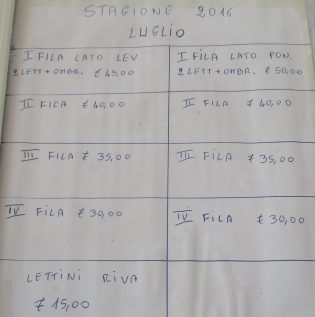 STAGIONE 2016
LUGLIO
I FILA LATO LEV
2 LETT + OMBR. € 45,00
I FILA LATO PON.
2 LETT + OMBR. € 50,00
II FILA € 40,00
II FILA € 40,00
III FILA € 35,00
III FILA € 35,00
IV FILA € 30,00
IV FILA € 30,00
LETTINI RIVA
€ 15,00